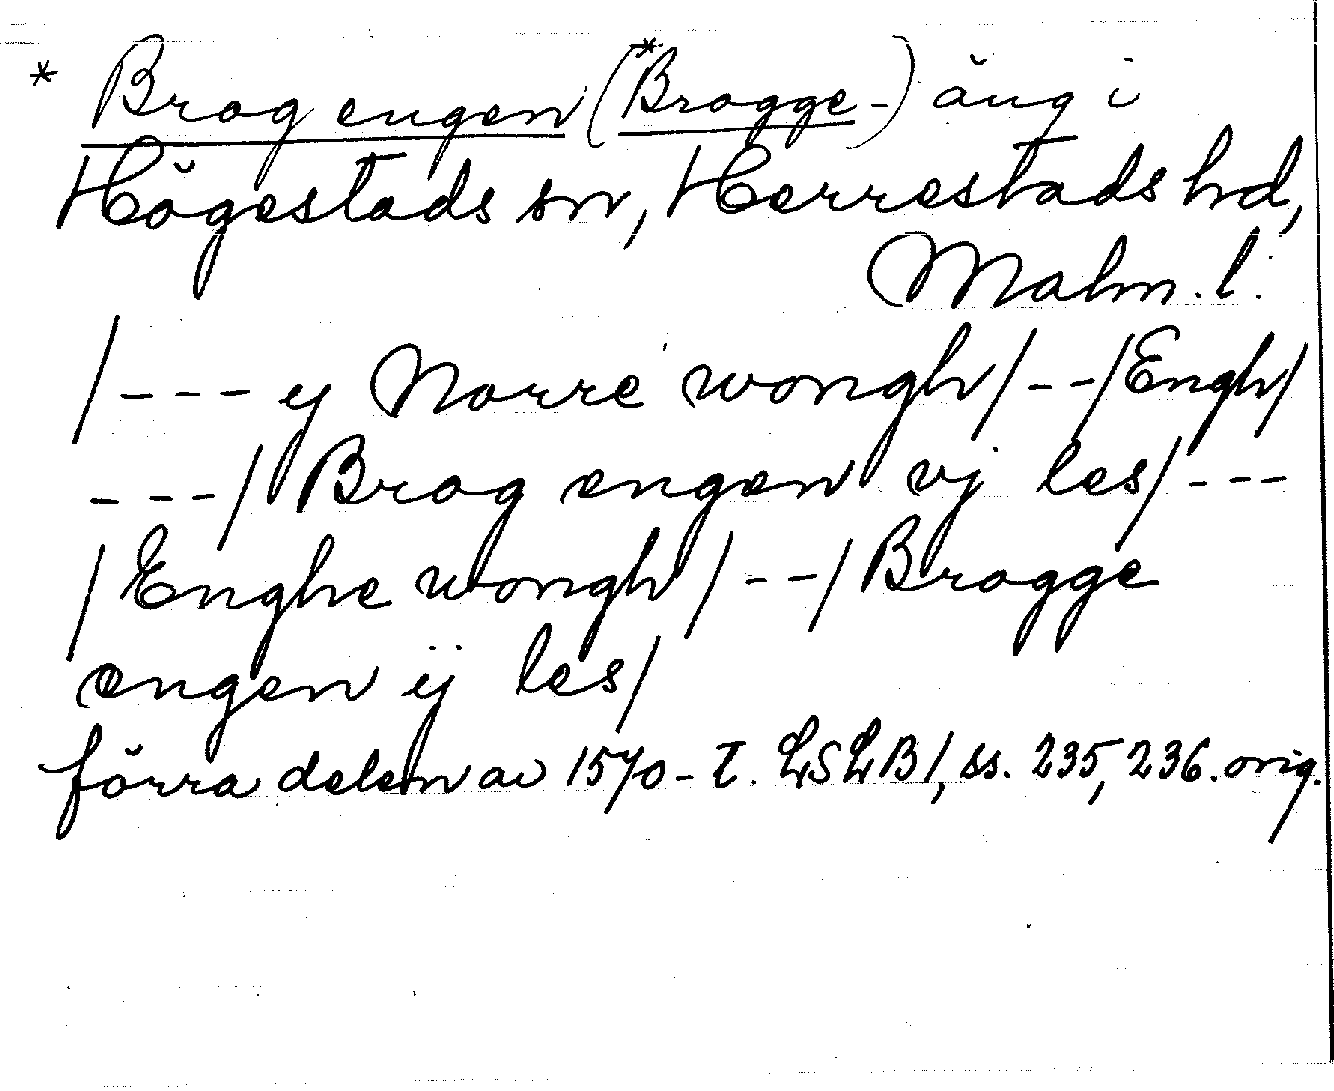 * Brog engen (*Brogge-) äng i
Högestads sn, Herrestads hd,
Malm. l.
/--- y Norre wongh/--/Engh/
---/Brog engen vj les/---
/Enghe wongh/--/Brogge
engen ij les/
förra delen av 1570-t. LSLB1, ss. 235, 236. orig.